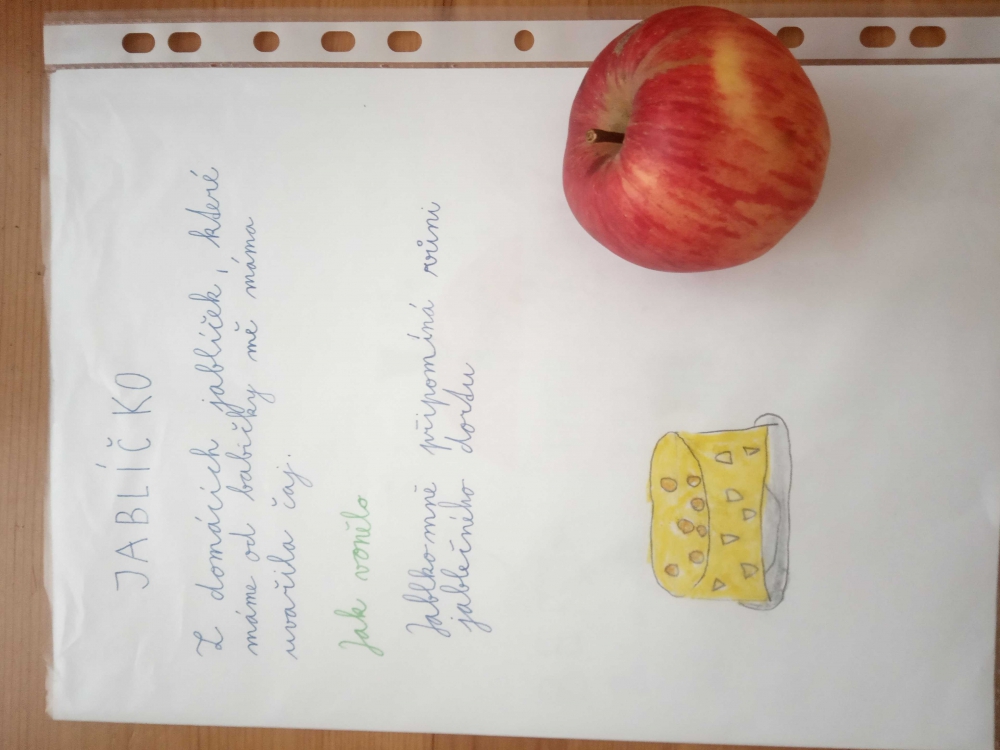 JABLÍČKO
Z domácích jablíček, které
máme od babičky mě máma
uvařila čaj.
Jak vonělo
Jablko mně připomíná vůni
jablečného dortu